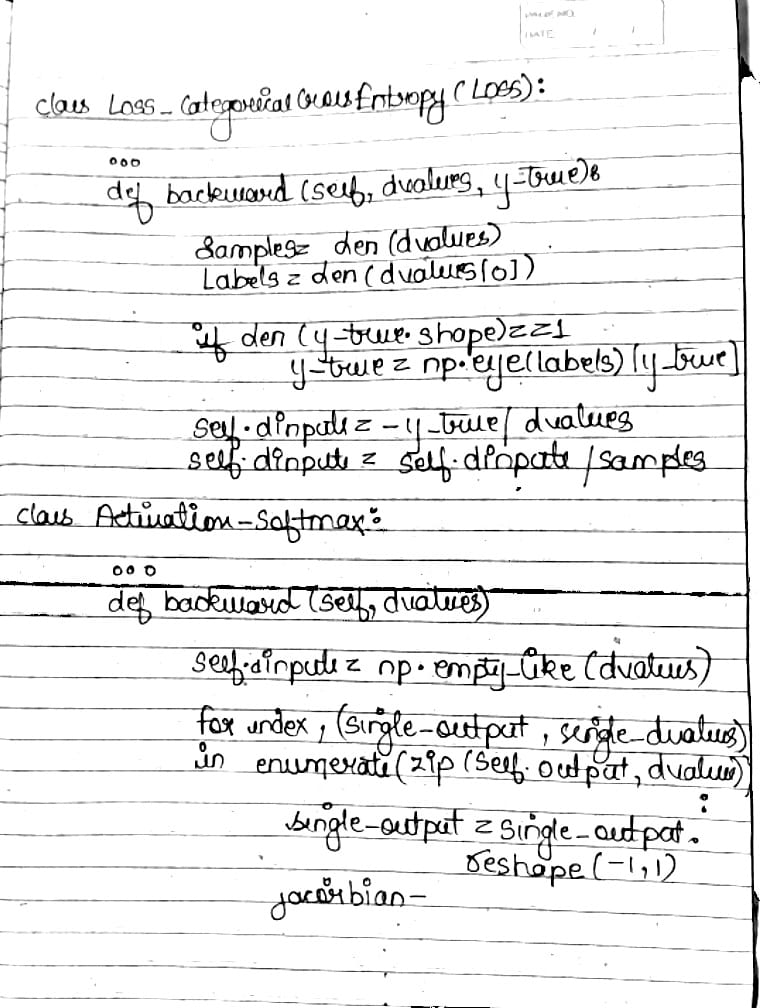 PAGE NO.
DATE / /
class Loss_CategoricalCrossEntropy(Loss):
ooo
def backward (self, dvalues, y-true):
Samples= len (dvalues)
Labels = len (dvalues[0])
if len (y-true. shape)==1
y-true = np.eye(labels) [y_true]
self.dinputs = -y_true/ dvalues
self.dinputs = self.dinputs /samples
class Activation-Softmax:
ooo
def backward (self, dvalues)
self.dinputs = np. empty_like (dvalues)
for index, (single-output, single-dvalues)
in enumerate(zip (self.output, dvalues))
:
single-output = single-output.
reshape (-1,1)
jacorbian-